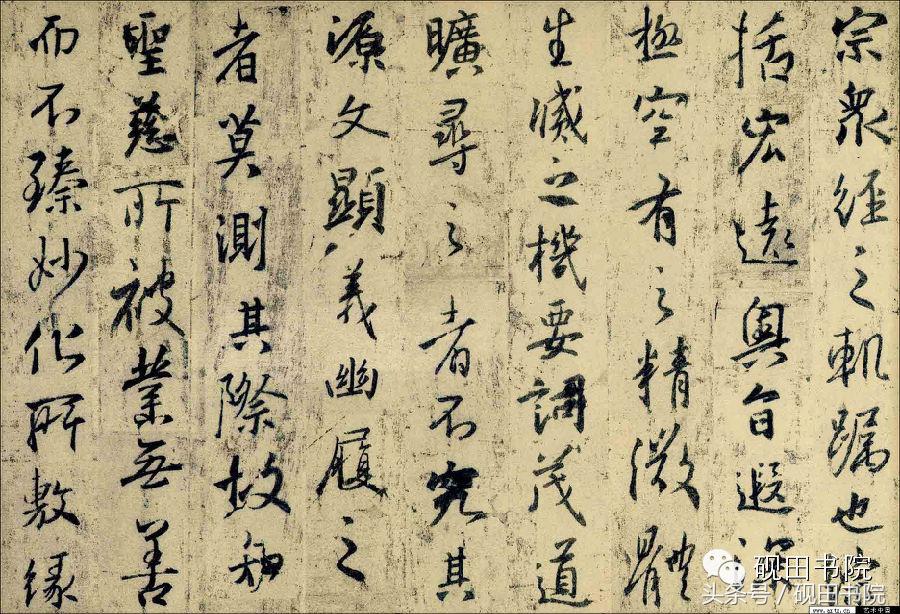 宗衆經之軌躅也
括宏遠奥旨遐深
極空有之精微體
生滅之機要詞茂道
曠尋之者不究其
源文顯義幽履之
者莫測其際故知
聖慈所被業無善
而不臻妙化所敷緣
砚田书院
头条号 / 砚田书院
www.artx.cn 艺术中国